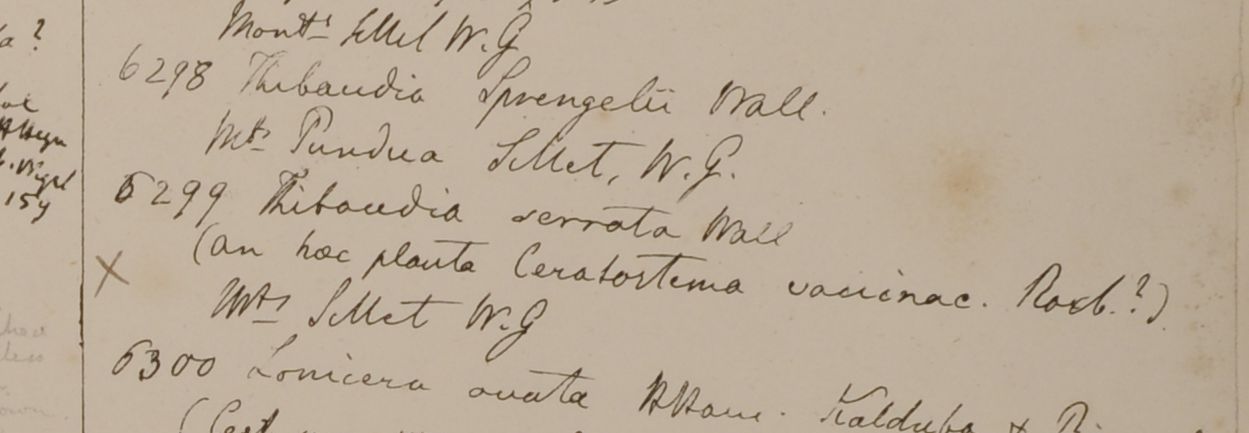 a?
Mont.s Sillet W.G
6298 Thibaudia Sprengelii Wall.
Mts Pundua Sillet, W.G.
6299 Thibaudia serrata Wall
(an hæc planta Ceratostema vaccinac. Roxb.?)
X
Mts Sillet W.G
6300 Lonicera ovata HHam. Kalduba &
159